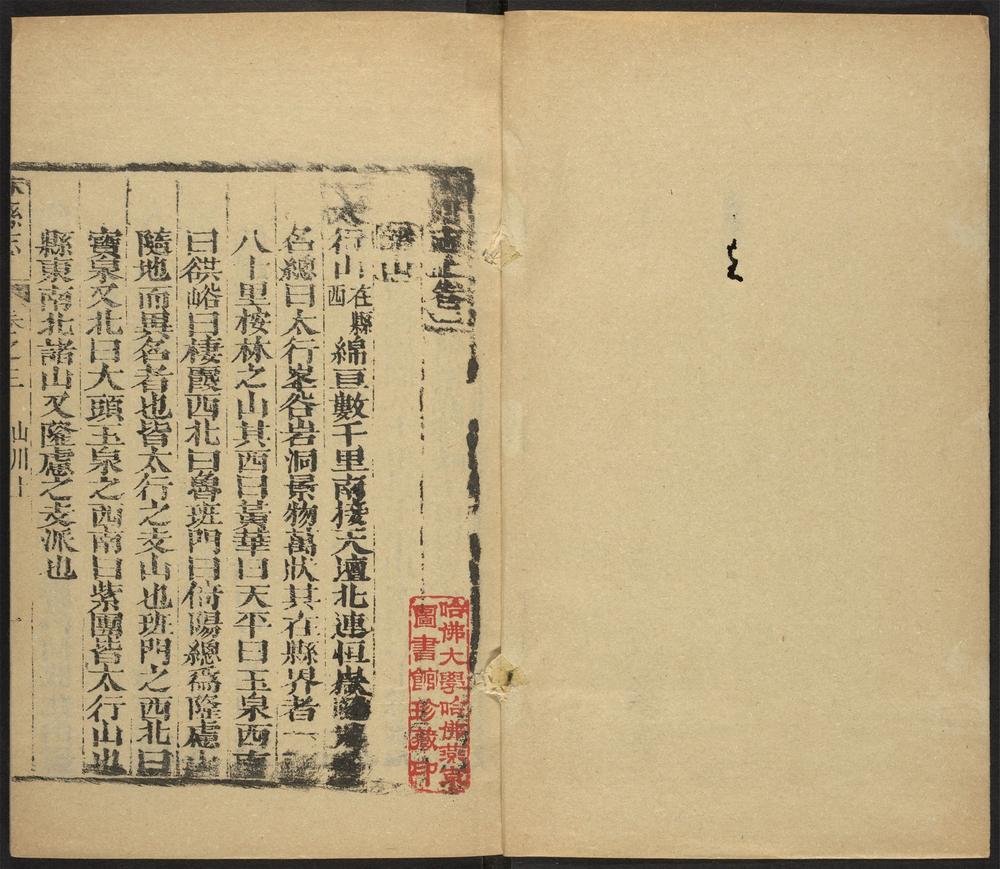 山
行山在縣西綿亘數千里南接天壇北連恒嶽
名總曰太行峯谷岩洞景物萬狀其在縣界者一
八十里桉林之山其西曰黃華曰天平曰玉泉西南
曰谼峪曰棲霞西北曰魯班門曰倚陽總爲隆慮山
隨地而異名者也皆太行之支山也班門之西北曰
寶泉又北曰大頭玉泉之西南曰紫團皆太行山也
縣東南北諸山又隆慮之支派也
林縣志 卷之三 山川上
哈佛大學哈佛燕京
圖書館珍藏印